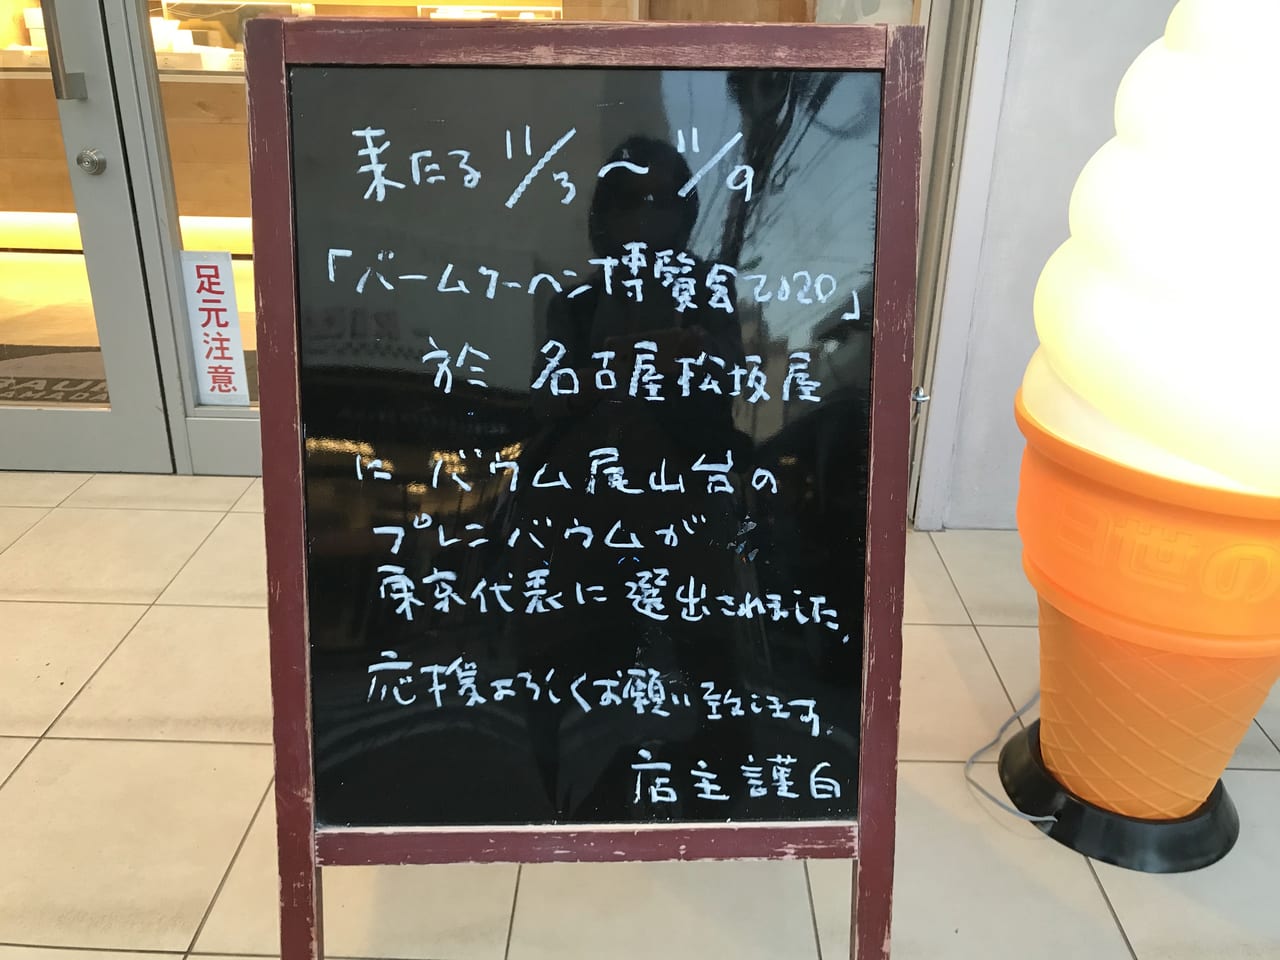 来たる 11/3～11/9
「バームクーヘン博覧会2020」
於 名古屋松坂屋
に バウム尾山台の
プレニバウムが
東京代表に選出されました。
応援よろしくお願い致します。
店主謹白
足元注意
日世の